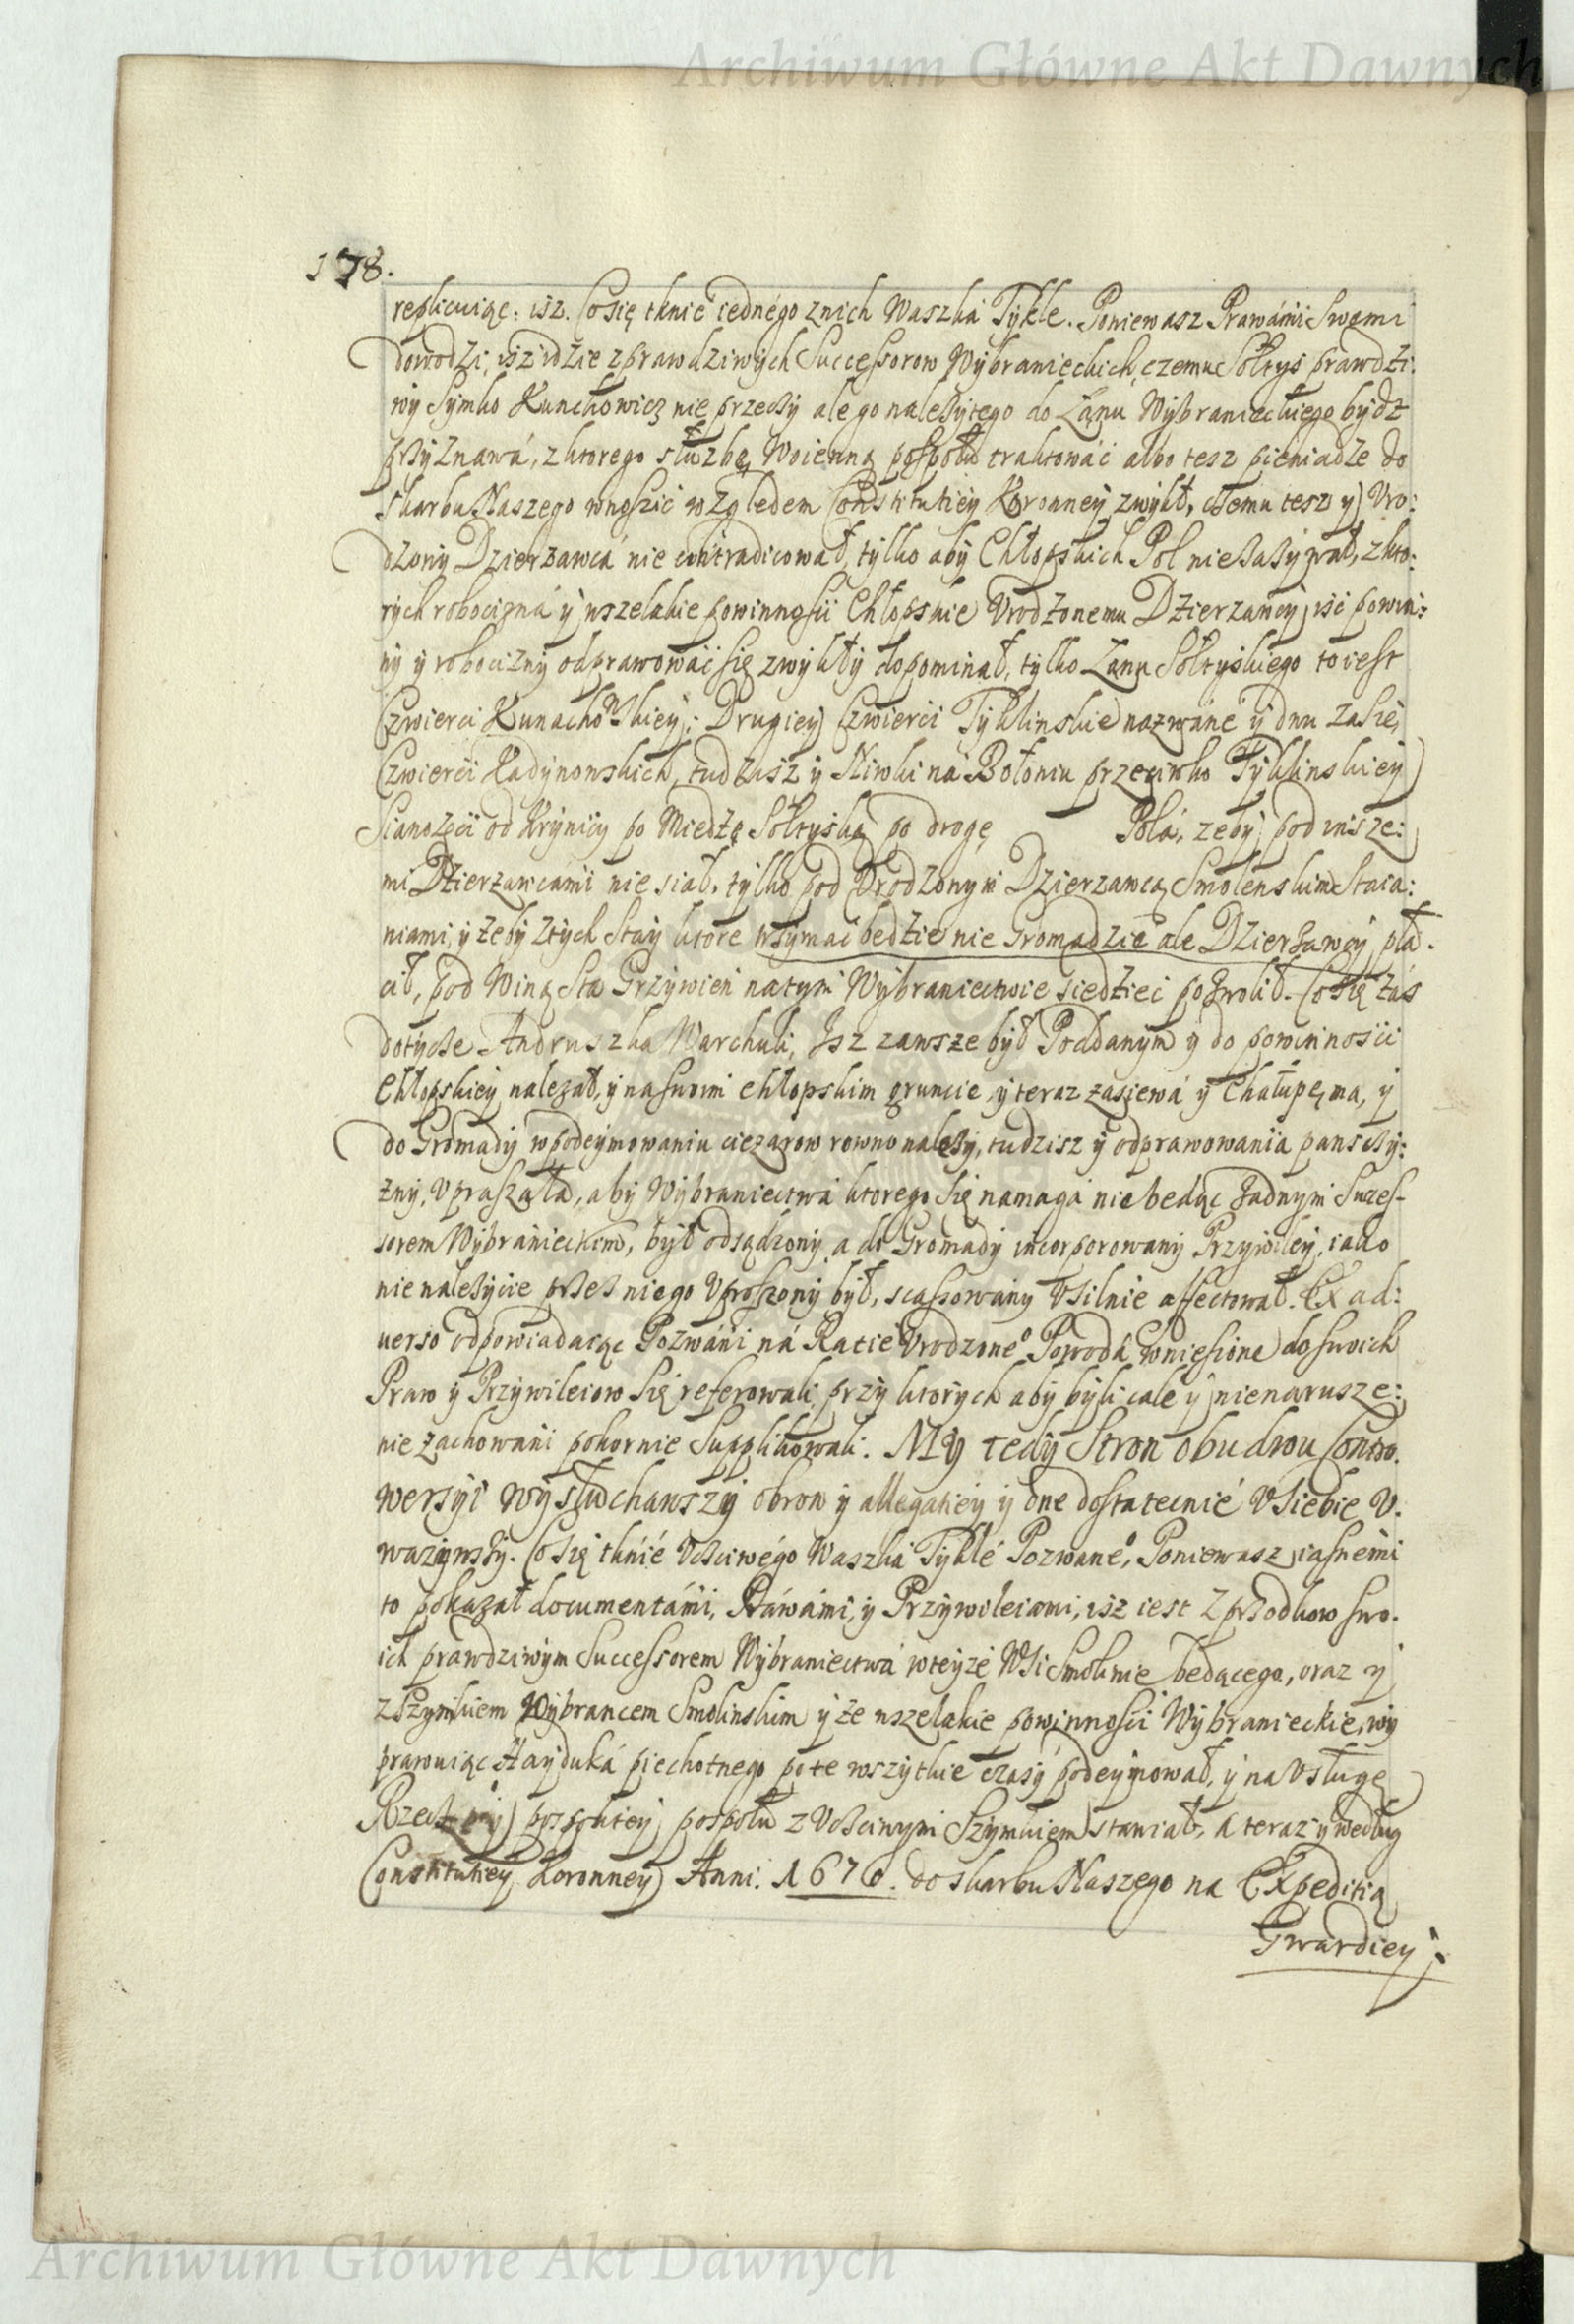 Archiwum Główne Akt Dawnych
178.
replicuiąc: isz. Co się tknie iednego z nich Waszka Tykle. Poniewasz Prawámi Swemi
dowodzi, isz idzie z prawdziwych Successorow Wybranieckich, czemu Sołtys prawdzi:
wy Symko Kunchowicz nie przeczy ale go należytego do Łanu Wybranieckiego bydź
przyznawá, z ktorego służbę Woienną pospołu traktowáć albo tesz pieniądze do
Skarbu Naszego wnosić względem Constitutiey Koronney zwykł, czemu tesz y Vro:
dzony Dzierzawcá nie contradicował, tylko aby Chłopskich Pol nie zażywał, z kto:
rych robocizná y wszelakie powinnosci Chłopskie Vrodzonemu Dzierzawcy iść powin:
ny y robocizny odprawować się zwykły dopominał, tylko Łanu Sołtyskiego to iest
Czwierci Kunachowskiey: Drugiey Czwierci Tyklinskie nazwáne y dnu zasię,
Czwierci Kadynowskich, tudzisz y Niwki ná Błoniu przeciwko Tyklinskiey
Sianożęci od Krynicy po Miedzę Sołtyską po drogę Polá, zeby pod insze:
mi Dzierzawcami nie siał, tylko pod Vrodzonym Dzierzawcą Smolenskim Staia:
niami, y żeby z tych Stay ktore trzymać będzie nie Gromadzie ale Dzierżawcy płá.
cił, pod Winą Sta Grzywień na tym Wybraniectwie siedzieć pozwolił. Co się záś
dotycze Andruszka Warchuli, Isz zawsze był Poddanym y do powinnosci
Chłopskiey należał, y na swoim chłopskim gruncie y teraz zasiewá y Chałupę ma, y
do Gromady w podeymowaniu ciężarow rowno należy, tudzisz y odprawowania panszczy:
zny, Vpraszała, aby Wybraniectwá ktorego się namagá nie będąc żadnym Succes-
sorem Wybránieckim, był odsądzony a do Gromady incorporowany Przywiley, iako
nie należycie przez niego Vproszony był, scassowany Vsilnie affectował. Ex ad:
uerso odpowiadaiąc Pozwáni ná Racie Vrodzone° Powodá wniesione do swoich
Praw y Przywileiow się referowali, przy ktorych aby byli cale y nienarusze:
nie zachowani pokornie Supplikowali. My tedy Stron obu dwu Contro.
wersyi wysłuchawszy obron y allegatiey y one dostatecnié V siebie V.
ważywszy. Co się tknié Vczciwégo Waszká Tyklé Pozwane°, Poniewasz iasnemi
to pokazał documentámi, Práwámi, y Przywileiami, isz iest z przodkow swo.
ich prawdziwym Successorem Wybraniectwá w teyże Wsi Smolinie będącego, oraz y
z Szymkiem Wybrancem Smolinskim y że wszelakie powinnosci Wybranieckie, wy
prawuiąc Hayduká piechotnego po te wszytkie czasy podeymował, y na Vsługę
Rzeczy pospolitey pospołu z Vczciwym Szymkiem stawiał, A teraz y według
Constitutiey Koronney Anni. 1676. do skarbu Naszego na Expeditią
Gwardiey:
Archiwum Główne Akt Dawnych